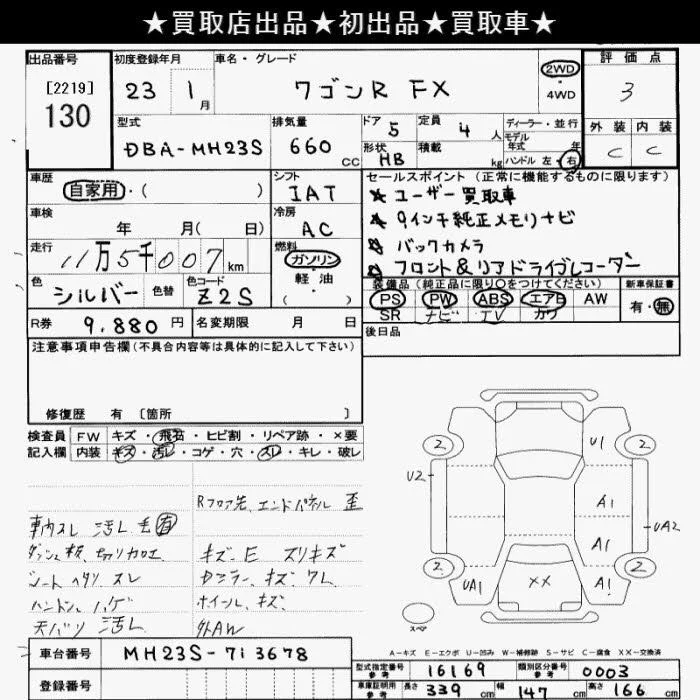 ★買取店出品★初出品★買取車★
出品番号 初度登録年月 車名・グレード 評価点
[2219] 23 1月 ワゴンR FX 2WD ・4WD 3
130
型式 排気量 ドア 5 定員 4人 ディーラー・並行 外装 内装
DBA-MH23S 660cc 形状 HB 積載 kg モデル年式 年 C C
ハンドル 左・右
車歴 シフト セールスポイント (正常に機能するものに限ります)
自家用・( ) IAT ★ ユーザー買取車
車検 冷房 ★ 9インチ純正メモリナビ
年 月( 日) AC ★ バックカメラ
走行 燃料 ★ フロント&リアドライブレコーダー
11万5千007km ガソリン
色 色替 色コード 軽油 装備品 (純正品に限り○をつけてください) 新車保証書
シルバー Z2S ( ) PS PW ABS エアB AW 有・無
SR ナビ TV カワ
R券 9,880円 名変期限 月 日 後日品
注意事項申告欄(不具合内容等は具体的に記入して下さい)
修復歴 有 [箇所 ]
検査員 FW キズ・飛石・ヒビ割・リペア跡・×要
記入欄 内装 キズ・汚レ・コゲ・穴・スレ・キレ・破レ
Rフロア先、エンドパネル 歪
車内スレ 汚レ
ダッシュ板、切り加工 キズ-E スリキズ
シート ヘタリ スレ
ハンドル ハゲ ホイール、キズ
天バリ 汚レ 外AW
U1
2 2
U2
A1
UA2
A1
2 2
UA1 ×× A1
スペア
A-キズ E-エクボ U-凹み W-補修跡 S-サビ C-腐食 XX-交換済
車台番号 MH23S-713678
型式指定番号 参考 16169 類別区分番号 参考 0003
登録番号
車庫証明用 参考 長さ 339cm 幅 147cm 高さ 166cm